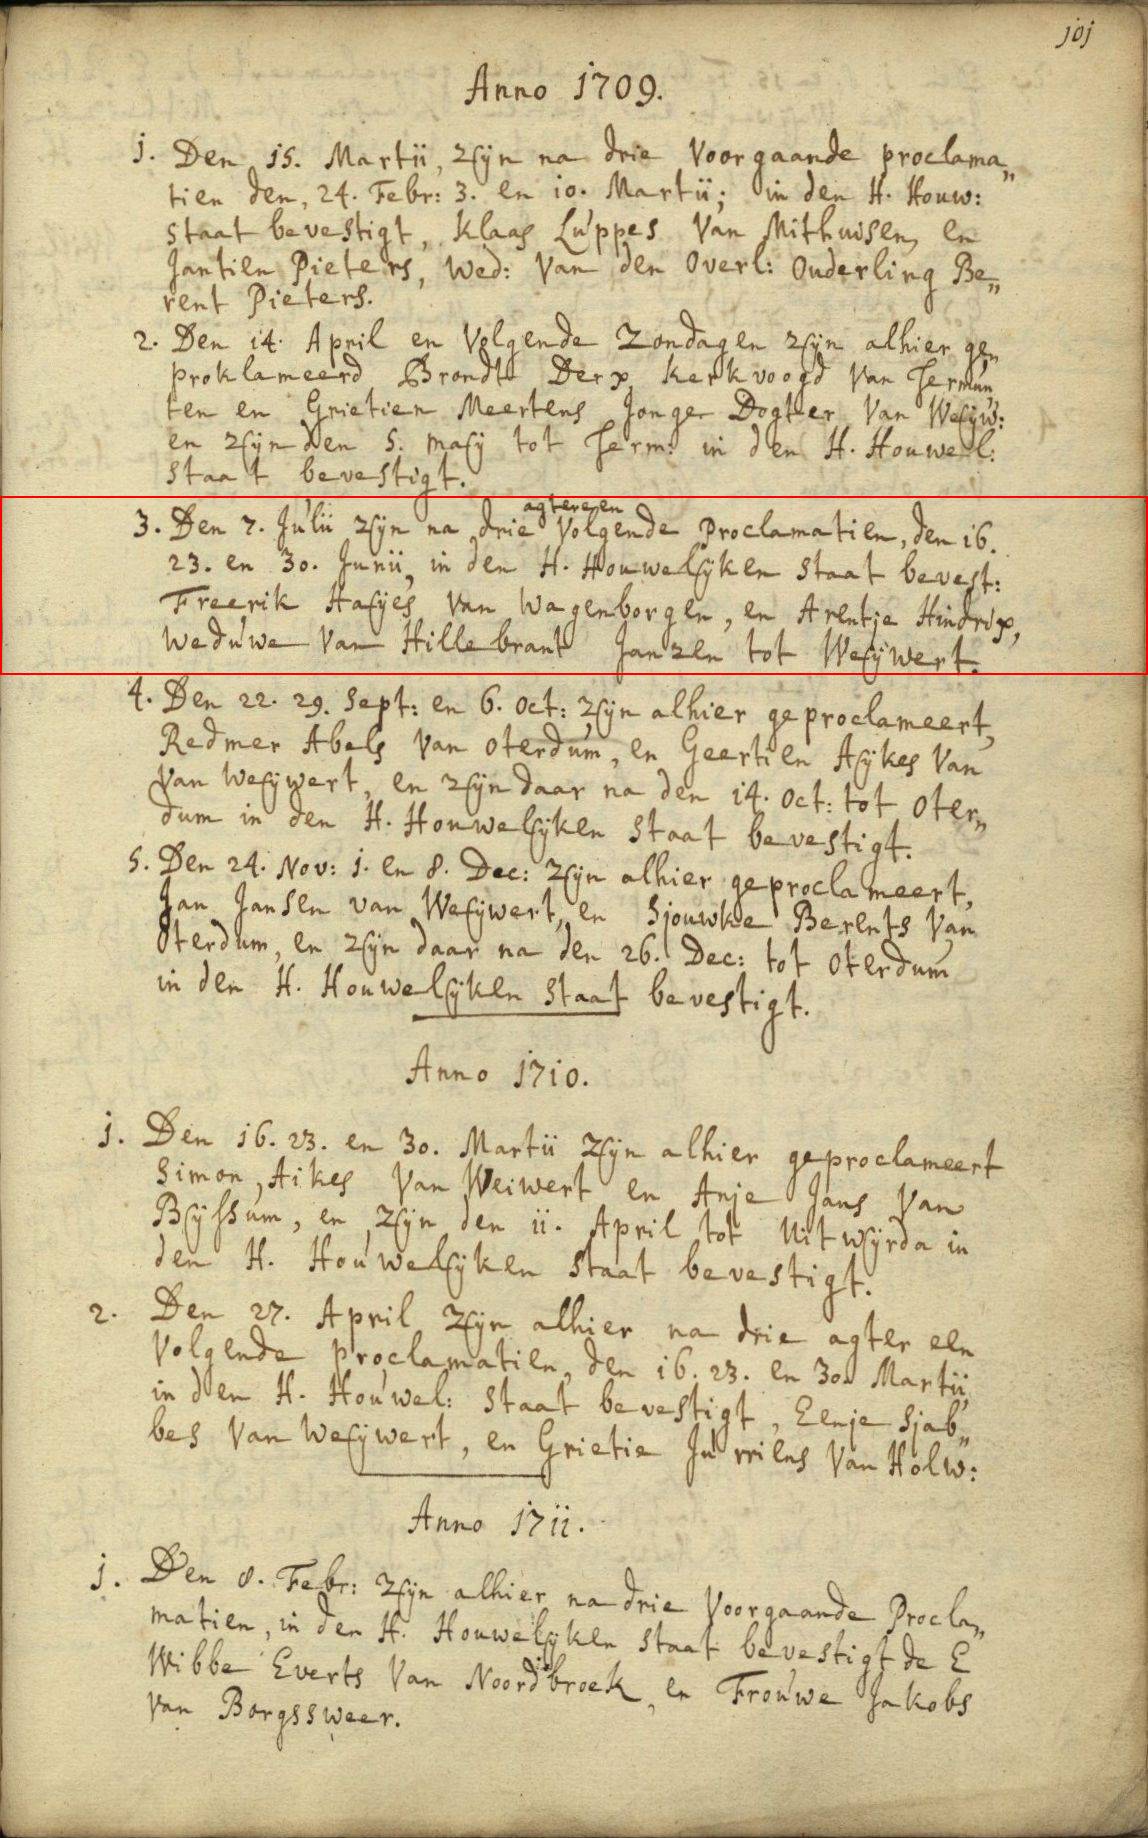 joj
Anno 1709.
j. Den 15. Martii, zÿn na drie Voorgaande proclama„
tien den, 24. Febr: 3. en io. Martii; in den H. Houw:
staat bevestigt, Klaas Luppes Van Mithuisen, en
Jantien Pieters, Wed: Van den Overl: Ouderling Be„
rent Pieters.
2. Den i4. April en Volgende Zondagen zÿn alhier ge„
proklameerd Brondt Derx, Kerkvoogd Van Termun„
ten en Grietien Meertens Jonge Dogter Van Weÿw:
en zÿn den 5. maÿ tot Term: in den H. Houwel:
staat bevestigt.
agtereen
3. Den 7. Julii zÿn na drie Volgende Proclamatien, den i6.
23. en 30. Junii, in den H. Houwelÿken staat bevest:
Freerik Haÿes Van Wagenborgen, en Arentje Hindrix,
Weduwe Van Hillebrant Janzen tot Weÿwert.
4. Den 22. 29. Sept: en 6. Oct: zÿn alhier geproclameert,
Redmer Abels Van Oterdum, en Geertien Aÿkes Van
Van Weÿwert, en zÿn daar na den i4. Oct: tot Oter„
dum in den H. Houwelÿken staat bevestigt.
5. Den 24. Nov: j. en 8. Dec: zÿn alhier geproclameert,
Jan Jansen van Weÿwert, en Sjouwke Berents Van
Oterdum, en zÿn daar na den 26. Dec: tot Oterdum
in den H. Houwelÿken staat bevestigt.
Anno 1710.
j. Den i6. 23. en 30. Martii zÿn alhier geproclameert
Simon Aikes Van Weiwert en Anje Jans Van
Bÿssum, en zÿn den ii. April tot Uitwÿrda in
den H. Houwelÿken staat bevestigt.
2. Den 27. April zÿn alhier na drie agter een
Volgende proclamatien, den i6. 23. en 30. Martii,
in den H. Houwel: staat bevestigt, Eenje Sjab„
bes Van Weÿwert, en Grietie Jurriens Van Holw:
Anno 17ii.
j. Den 8. Febr: zÿn alhier na drie Voorgaande Procla„
matien, in den H. Houwelÿken staat bevestigt de E
Wibbe Everts Van Noordbroek, en Frouwe Jakobs
Van Borgssweer.